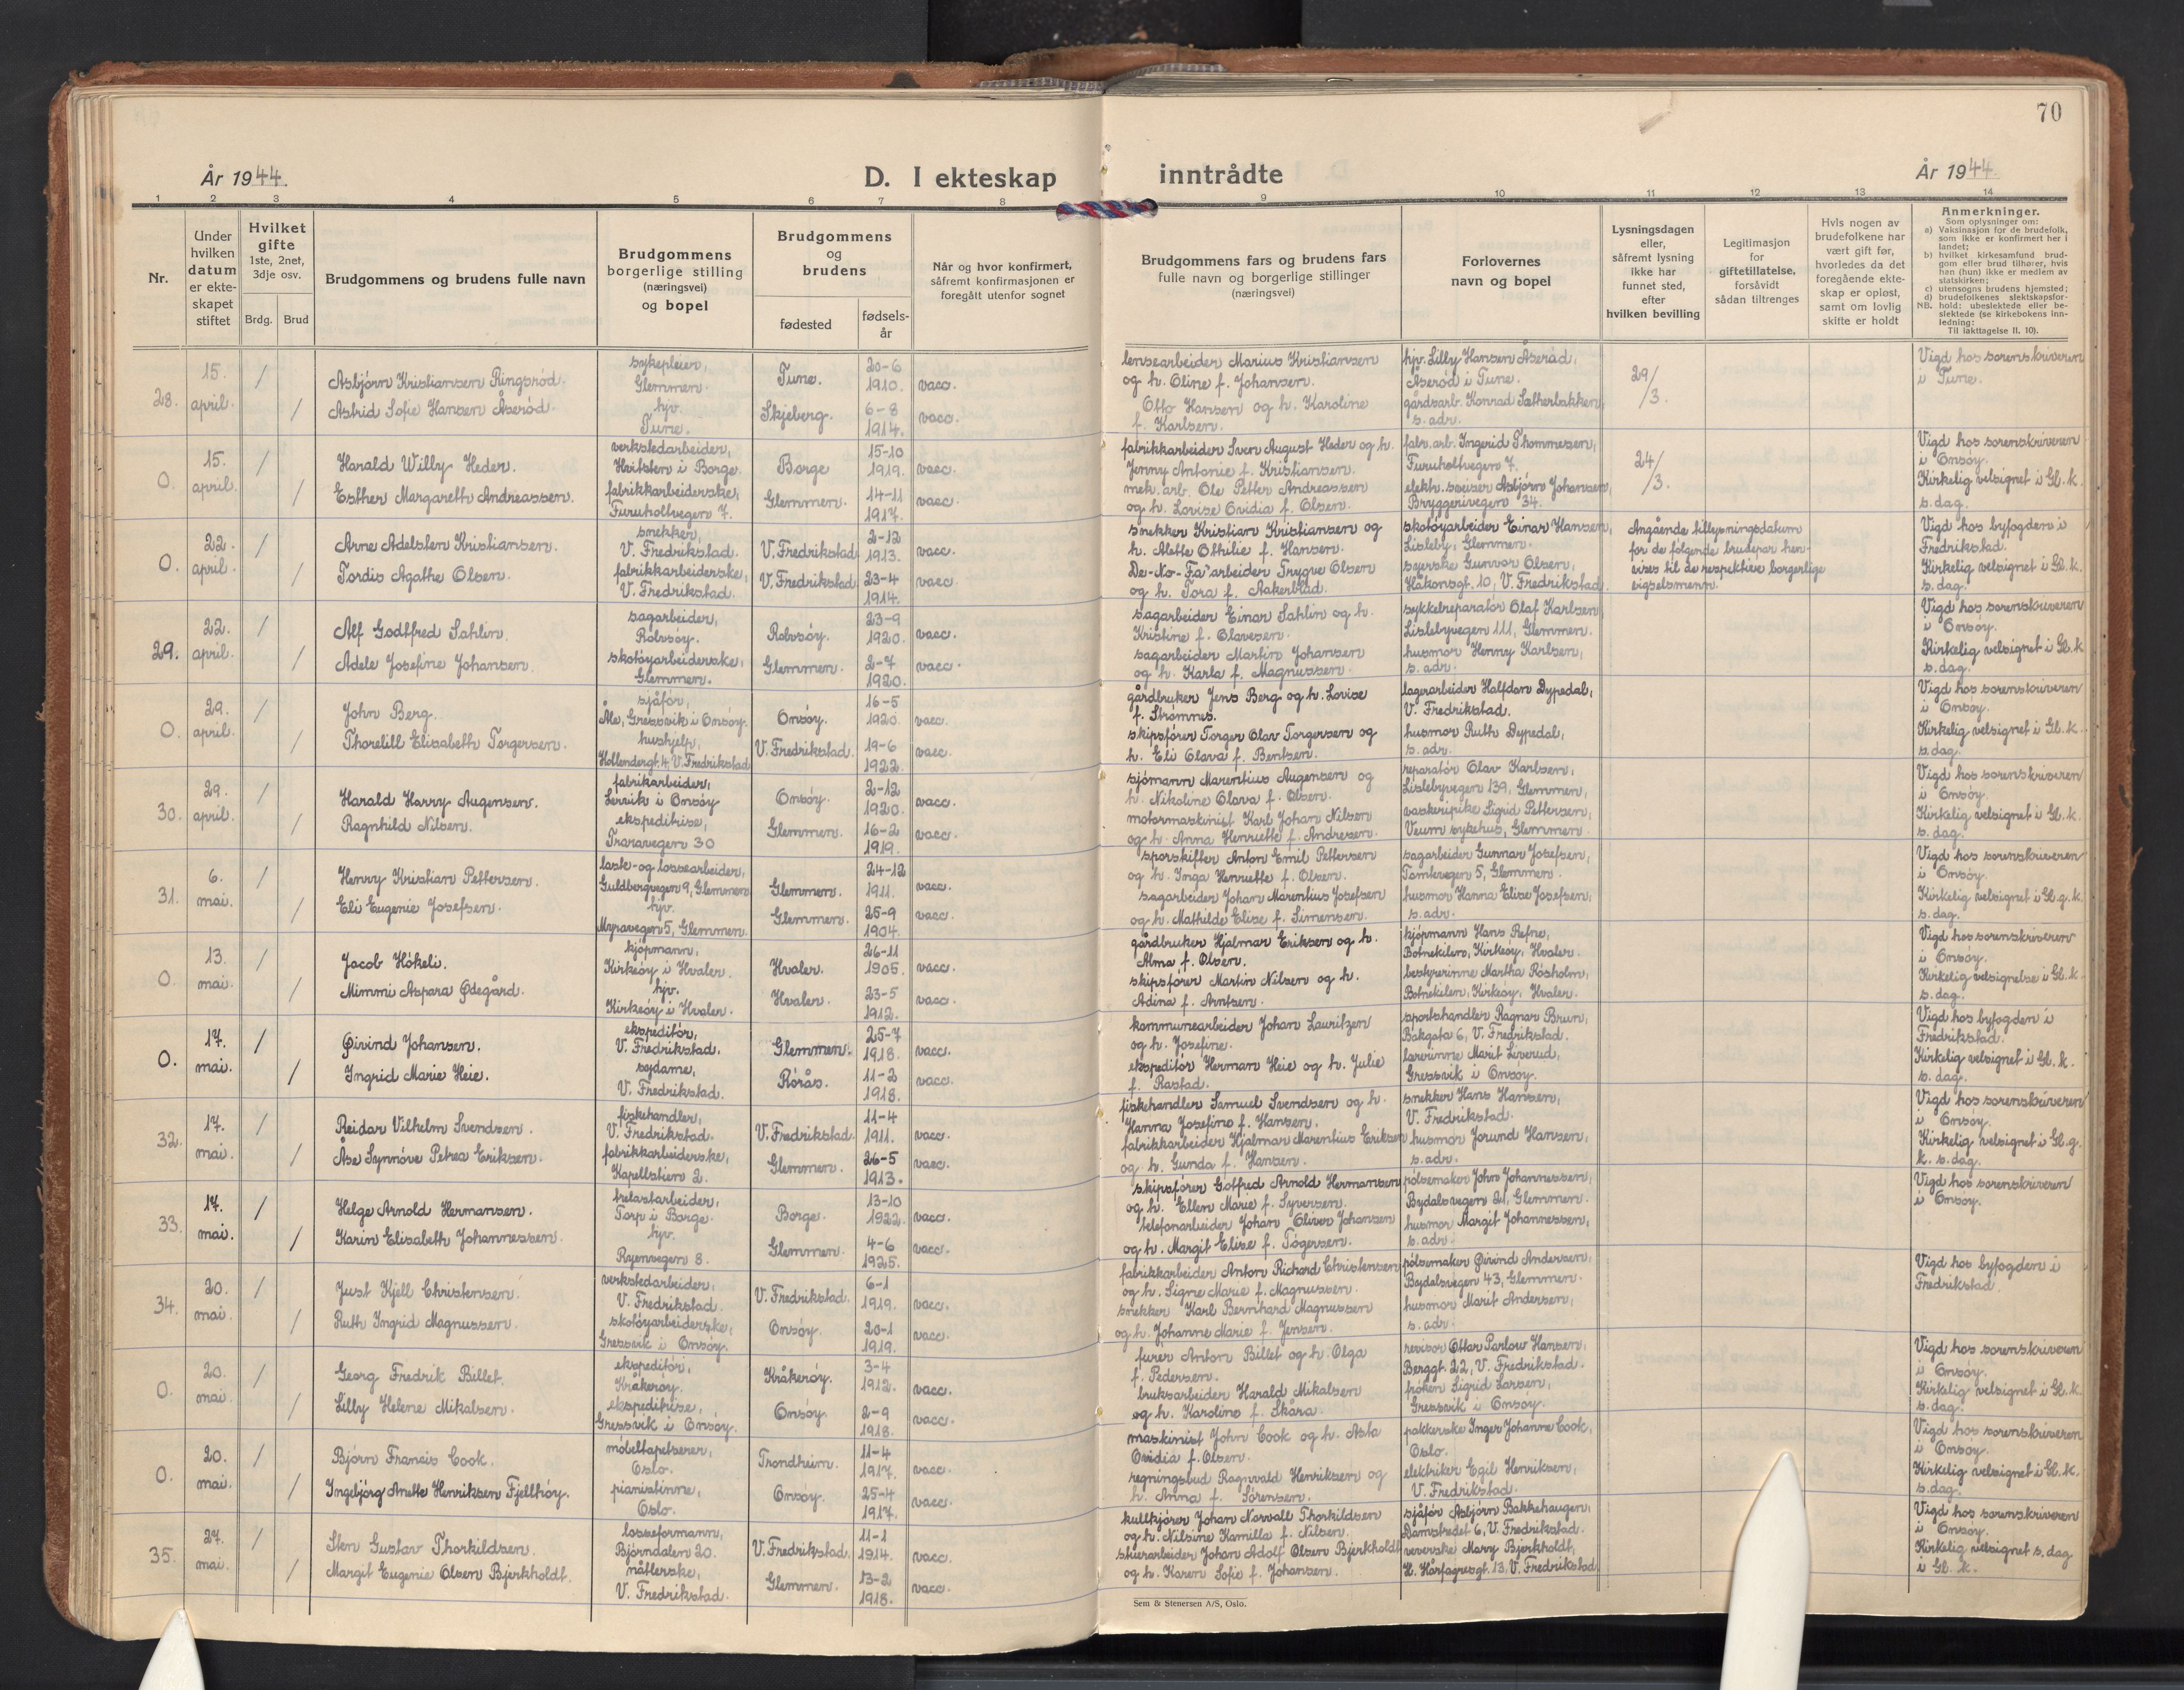 70
År 1944.
D. I ekteskap inntrådte
År 1944
1 2 3 4 5 6 7 8 9 10 11 12 13 14
Nr.
Under hvilken datum er ekte-skapet stiftet
Hvilket gifte 1ste, 2net, 3dje osv.
Brdg. Brud
Brudgommens og brudens fulle navn
Brudgommens borgerlige stilling (næringsvei) og bopel
Brudgommens og brudens
fødested
fødsels-år
Når og hvor konfirmert, såfremt konfirmasjonen er foregått utenfor sognet
Brudgommens fars og brudens fars fulle navn og borgerlige stillinger (næringsvei)
Forlovernes navn og bopel
Lysningsdagen eller, såfremt lysning ikke har funnet sted, efter hvilken bevilling
Legitimasjon for giftetillatelse, forsåvidt sådan tiltrenges
Hvis nogen av brudefolkene har vært gift før, hvorledes da det foregående ekte-skap er opløst, samt om lovlig skifte er holdt
Anmerkninger.
Som oplysninger om:
a) Vaksinasjon for de brudefolk, som ikke er konfirmert her i landet;
b) hvilket kirkesamfund brud-gom eller brud tilhører, hvis han (hun) ikke er medlem av statskirken;
c) utensogns brudens hjemsted;
d) brudefolkenes slektskapsfor-hold: ubeslektede eller be-slektede (se kirkebokens inn-ledning:
NB. Til iakttagelse II. 10).
28. 15. april.
Asbjørn Kristiansen Ringsrød. sykepleier, Glemmen. Tune. 20-6 1910. vacc.
Astrid Sofie Hansen Åserød. hjv. Tune. Skjeberg. 6-8 1914. vacc.
lensearbeider Marius Kristiansen
og h. Oline f. Johansen.
Otto Hansen og h. Karoline
f. Karlsen.
hjv. Lilly Hansen Åserød,
Åserød i Tune.
gårdsarb. Konrad Sætherbakken,
s. adr.
29/3.
Vigd hos sorenskriveren
i Tune.
0. 15. april.
Harald Willy Heder. verkstedarbeider, Heitsten i Borge. Borge 15-10 1919. vacc.
Esther Margareth Andreassen. fabrikkarbeiderske, Furuholtvegen 7. Glemmen. 14-11 1917. vacc.
fabrikkarbeider Sven August Heder og h.
Jenny Antonie f. Kristiansen.
mek. arb. Ole Petter Andreassen
og h. Lovise Ovidia f. Olsen.
fabr. arb. Ingerid Thommesen,
Furuholtvegen 7.
elektr. sveiser Asbjørn Johansen,
Bryggerivegen 34.
24/3.
Vigd hos sorenskriveren
i Onsøy.
Kirkelig velsignet i Gl. k.
s. dag.
0. 22. april.
Arne Adelsten Kristiansen. snekker, V. Fredrikstad. V. Fredrikstad 2-12 1913. vacc.
Tordis Agathe Olsen. fabrikkarbeiderske, V. Fredrikstad. V. Fredrikstad 23-4 1914. vacc.
snekker Kristian Kristiansen og
h. Alette Othilie f. Hansen.
De-No-Fa" arbeider Trygve Olsen
og h. Tora f. Aakerblad.
skotøyarbeider Einar Hansen,
Lisleby, Glemmen.
syerske Gunvor Olsen,
Håkonsgt. 10, V. Fredrikstad
Angående tillysningsdatum
for de følgende brudepar hen-
vises til de respektive borgerlige
vigselsmenn.
Vigd hos byfogden i
Fredrikstad.
Kirkelig velsignet i Gl. k.
s. dag.
29. 22. april.
Alf Godtfred Sahlin. sagarbeider, Rolvsøy. Rolvsøy. 23-9 1920. vacc.
Adele Josefine Johansen. skotøyarbeiderske, Glemmen. Glemmen. 2-7 1920. vacc.
sagarbeider Einar Sahlin og h.
Kristine f. Olavesen.
sagarbeider Martin Johansen
og h. Karla f. Magnussen.
sykkelreparatør Olaf Karlsen,
Lislebyvegen 111, Glemmen.
husmor Henny Karlsen,
s. adr.
Vigd hos sorenskriveren
i Onsøy.
Kirkelig velsignet i Gl. k
s. dag.
0. 29. april.
John Berg. sjåfør, Åle, Gressvik i Onsøy. Onsøy. 16-5 1920. vacc.
Thorelill Elisabeth Torgersen. hushjelp, Hollendergt. 4, V. Fredrikstad V. Fredrikstad. 19-6 1922. vacc.
gårdbruker Jens Berg og h. Lovise
f. Strømnes.
skipsfører Torger Olav Torgersen og
h. Eli Olava f. Bentsen.
lagerarbeider Halfdan Dypedal,
V. Fredrikstad.
husmor Ruth Dypedal,
s. adr.
Vigd hos sorenskriveren
i Onsøy.
Kirkelig velsignet i Gl. k.
s. dag.
30. 29. april.
Harald Harry Augensen. fabrikarbeider, Lervik i Onsøy Onsøy. 2-12 1920. vacc.
Ragnhild Nilsen. ekspeditrise, Traravegen 30 Glemmen. 16-2 1919. vacc.
sjømann Marentius Augensen og
h. Nikoline Olava f. Olsen.
motormaskinist Karl Johan Nilsen
og h. Anna Henriette f. Andresen.
reparatør Olav Karlsen,
Lislebyvegen 139, Glemmen,
vaskeripike Sigrid Pettersen,
Veum sykehus, Glemmen.
Vigd hos sorenskriveren
i Onsøy.
Kirkelig velsignet i Gl. k.
s. dag.
31. 6. mai.
Henry Kristian Pettersen. laste-og lossearbeider, Guldbergvegen 9, Glemmen Glemmen. 24-12 1911. vacc.
Eli Eugenie Josefsen. hjv. Myravegen 5, Glemmen. Glemmen. 25-9 1904. vacc.
sporskifter Anton Emil Pettersen
og h. Inga Henriette f. Olsen.
sagarbeider Johan Marentius Josefsen
og h. Mathilde Elise f. Simensen.
sagarbeider Gunnar Josefsen,
Tomtevegen 5, Glemmen.
husmor Hanna Elise Josefsen,
s. adr.
Vigd hos sorenskriveren
i Onsøy.
Kirkelig velsignet i Gl. g. k.
s. dag.
0. 13. mai.
Jacob Hökeli. kjøpmann, Kirkeøy i Hvaler. Hvaler. 26-11 1905. vacc.
Mimmi Aspara Ødegård. hjv. Kirkeøy i Hvaler. Hvaler. 23-5 1912. vacc.
gårdbruker Hjalmar Eriksen og h.
Alma f. Olsen.
skipsfører Martin Nilsen og h.
Adina f. Arntsen.
kjøpmann Hans Refne,
Botnekilen, Kirkeøy, Hvaler.
bestyrerinne Martha Rösholm,
Botnekilen, Kirkeøy, Hvaler.
Vigd hos sorenskriveren
i Onsøy.
Kirkelig velsignelse i Gl. k.
s. dag.
0. 17. mai.
Øivind Johansen. ekspeditør, V. Fredrikstad. Glemmen. 25-7 1918. vacc.
Ingrid Marie Heie. sydame, V. Fredrikstad. Rørås. 11-2 1918. vacc.
kommunearbeider Johan Lauritzen
og h. Josefine.
ekspeditør Herman Heie og h. Julie
f. Rastad.
sportshandler Ragnar Brun,
Bakgata 6, V. Fredrikstad.
lærerinne Marit Liverud,
Gressvik i Onsøy.
Vigd hos byfogden i
Fredrikstad.
Kirkelig velsignet i Gl. k.
s. dag.
32. 17. mai.
Reidar Vilhelm Svendsen. fiskehandler, V. Fredrikstad. V. Fredrikstad. 11-4 1911. vacc.
Åse Synnøve Petrea Eriksen. fabrikkarbeiderske, Kapellstien 2. Glemmen. 26-5 1913. vacc.
fiskehandler Samuel Svendsen og h.
Hanna Josefine f. Hansen.
fabrikkarbeider Hjalmar Marentius Eriksen
og h. Gunda f. Hansen.
snekker Hans Hansen,
V. Fredrikstad.
husmor Jorund Hansen,
s. adr.
Vigd hos sorenskriveren
i Onsøy.
Kirkelig velsignet i Gl. g.
k. s. dag.
33. 17. mai.
Helge Arnold Hermansen. trelastarbeider, Torp i Borge. Borge. 13-10 1922. vacc.
Karin Elisabeth Johannessen. hjv. Ryenvegen 8. Glemmen. 4-6 1925. vacc.
skipsfører Gotfred Arnold Hermansen
og h. Ellen Marie f. Syversen.
telefonarbeider Johan Oliver Johansen
og h. Margit Elise f. Tögersen.
pølsemaker John Johannessen,
Bydalsvegen 21, Glemmen.
husmor Margit Johannessen,
s. adr.
Vigd hos sorenskriveren
i Onsøy.
34. 20. mai.
Just Kjell Christensen. verkstedarbeider, V. Fredrikstad. V. Fredrikstad. 6-1 1919. vacc.
Ruth Ingrid Magnussen. skotøyarbeiderske, Gressvik i Onsøy. Onsøy. 20-1 1919. vacc.
fabrikkarbeider Anton Richard Christensen
og h. Signe Marie f. Magnussen.
snekker Karl Bernhard Magnussen
og h. Johanne Marie f. Jensen.
pølsemaker Øivind Andersen,
Bydalsvegen 43, Glemmen.
husmor Marit Andersen,
s. adr.
Vigd hos byfogden i
Fredrikstad.
0. 20. mai.
Georg Fredrik Billet. ekspeditør, Kråkerøy. Kråkerøy. 3-4 1912. vacc.
Lilly Helene Mikalsen. ekspeditrise, Gressvik i Onsøy. Onsøy. 2-9 1918. vacc.
furer Anton Billet og h. Olga
f. Pedersen.
bruksarbeider Harald Mikalsen
og h. Karoline f. Skåra.
revisor Ottar Parlow Hansen,
Berggt. 22, V. Fredrikstad.
frøken Sigrid Larsen,
Gressvik i Onsøy.
Vigd hos sorenskriveren
i Onsøy.
Kirkelig velsignet i Gl. k.
s. dag.
0. 20. mai.
Bjørn Francis Cook. møbeltapetserer, Oslo. Trondheim. 11-4 1917. vacc.
Ingebjørg Anette Henriksen Fjelltröy. pianistinne, Oslo. Onsøy. 25-4 1917. vacc.
maskinist John Cook og h. Asta
Ovidia f. Olsen.
regningsbud Ragnvald Henriksen og
h. Anna f. Sörensen.
pakkerske Inger Johanne Cook,
Oslo.
elektriker Egil Henriksen,
V. Fredrikstad.
Vigd hos sorenskriveren
i Onsøy.
Kirkelig velsignet i Gl. k.
s. dag.
35. 27. mai.
Sten Gustav Thorkildsen. losseformann, Bjørndalen 20. V. Fredrikstad. 11-1 1914. vacc.
Margit Eugenie Olsen Bjerkholdt. nåtlerske, V. Fredrikstad. Glemmen. 13-2 1918. vacc.
kullkjører Johan Norvall Thorkildsen
og h. Nilsine Kamilla f. Nilsen.
stuerarbeider Johan Adolf Olsen Bjerkholdt
og h. Karen Sofie f. Johansen.
sjåfør Asbjørn Bakkehaugen,
Damstredet 6, V. Fredrikstad.
veverske Mary Bjerkholdt,
H. Hårfagresgt. 13, V. Fredrikstad
Vigd hos sorenskriveren
i Onsøy.
Kirkelig velsignet s. dag
i Gl. k.
Sem & Stenersen A/S, Oslo.